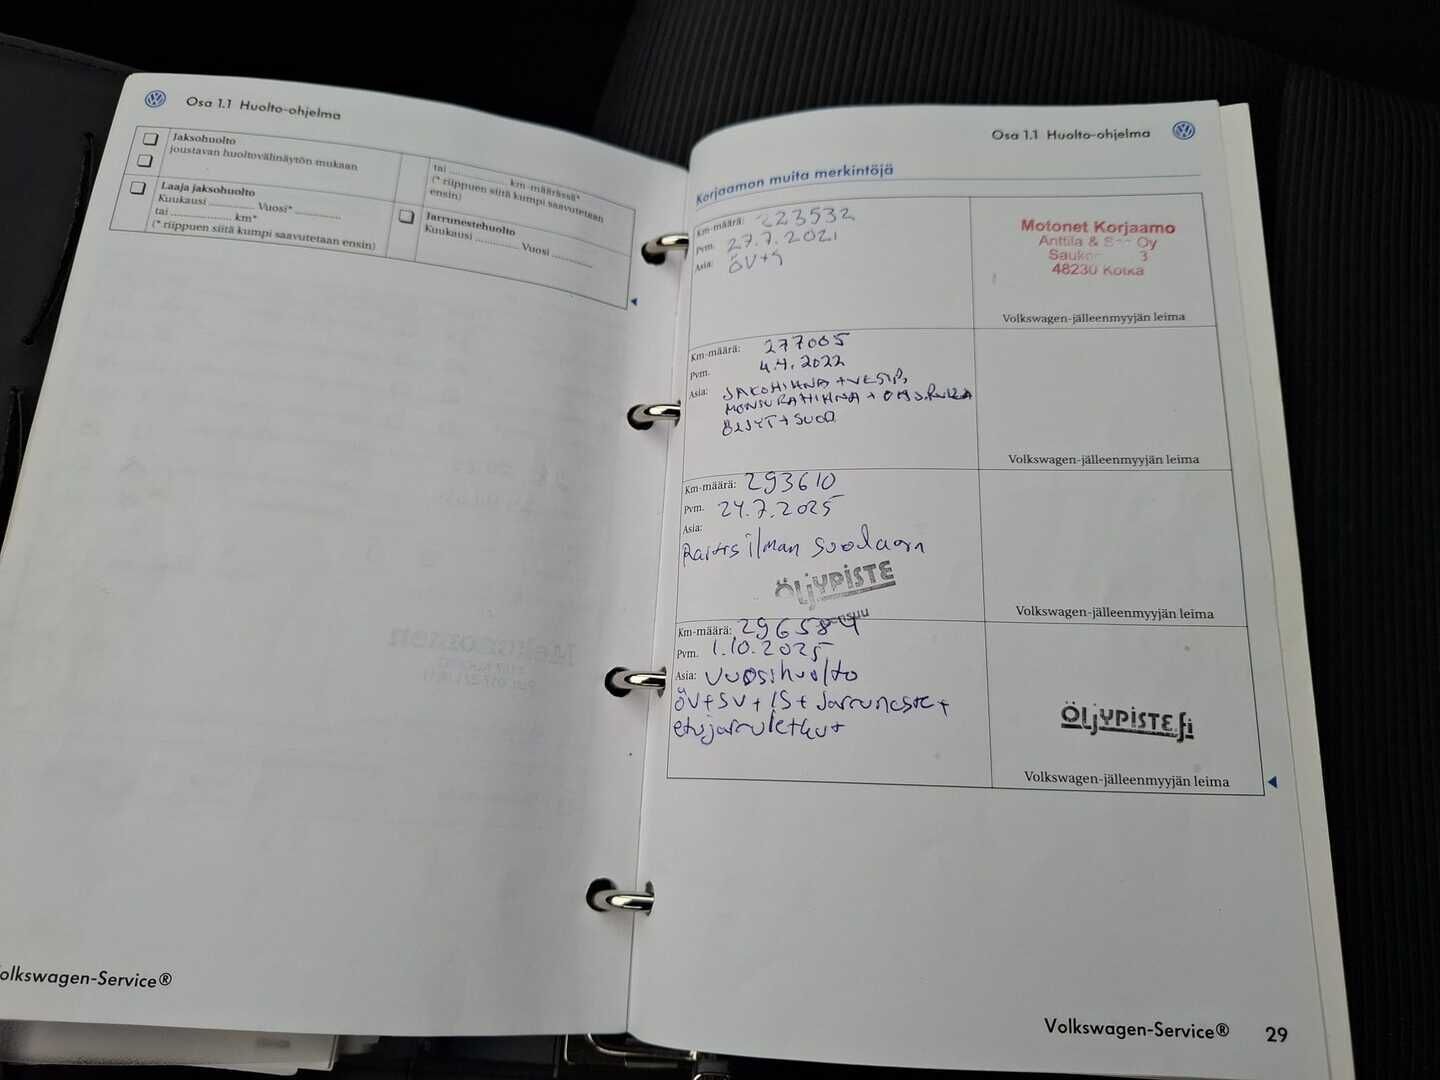 Osa 1.1 Huolto-ohjelma
Jaksohuolto
joustavan huoltovälinäytön mukaan
Laaja jaksohuolto
Kuukausi .............. Vuosi* ..............
tai .................. km*
(* riippuen siitä kumpi saavutetaan ensin)
tai .................. km-määrässä*
(* riippuen siitä kumpi saavutetaan
ensin)
Jarrunestehuolto
Kuukausi ............. Vuosi .............
olkswagen-Service®
Osa 1.1 Huolto-ohjelma
Korjaamon muita merkintöjä
Km-määrä: 223532
Pvm. 27.7.2021
Asia: ÖV+S
Motonet Korjaamo
Anttila & Oy
3
48230 Kotka
Volkswagen-jälleenmyyjän leima
Km-määrä: 277005
Pvm. 4.4.2022
Asia: JAKOHIHNA + VESIP,
MONIURAHIHNA +
ÖLJYT + SUOD
Volkswagen-jälleenmyyjän leima
Km-määrä: 293610
Pvm. 24.7.2025
Asia:
ilman suodaan
ÖLJYPISTE
Volkswagen-jälleenmyyjän leima
Km-määrä: 296584
Pvm. 1.10.2025
Asia: Vuosihuolto
ÖV+SV+IS+Jarruneste+
etujarruletkut
ÖLJYPISTE.fi
Volkswagen-jälleenmyyjän leima
Volkswagen-Service® 29